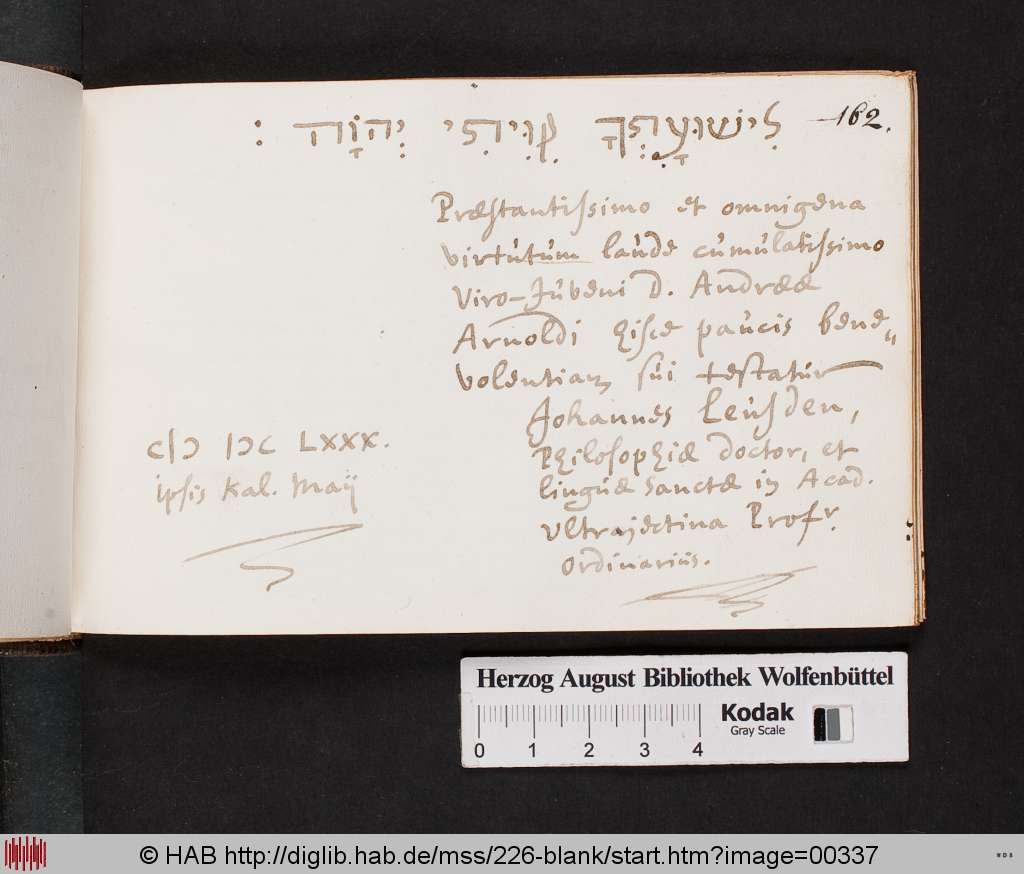 162.
לִישׁוּעָתְךָ קִוִּיתִי יְהוָֹה :
Præstantissimo et omnigena
virtutum laude cumulatissimo
Viro-Juveni D. Andreæ
Arnoldi hisce paucis bene„
volentiam sui testatur
Johannes Leusden,
Philosophiæ doctor, et
linguæ sanctæ in Acad.
Ultrajectina Profr.
Ordinarius.
cIↃ IↃc LXXX.
ipsis Kal. Maij
Herzog August Bibliothek Wolfenbüttel
Kodak
Gray Scale
0 1 2 3 4
© HAB http://diglib.hab.de/mss/226-blank/start.htm?image=00337
WDB